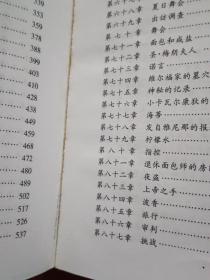 339
353
380
390
403
410
428
438
449
468
472
480
489
502
517
537
第六十八章 夏日舞会
第六十九章 出访调查
第七十章 舞会
第七十一章 面包和盐
第七十二章 圣·梅朗夫人
第七十三章 诺言
第七十四章 维尔福家的墓穴
第七十五章 神秘的记录
第七十六章 小卡瓦尔康狄的
第七十七章 海蒂
第七十八章 发自亚尼那的报
第七十九章 柠檬水
第八十章 指控
第八十一章 退休面包师的房
第八十二章 夜盗
第八十三章 上帝之手
第八十四章 波香
第八十五章 旅行
第八十六章 审判
第八十七章 挑战